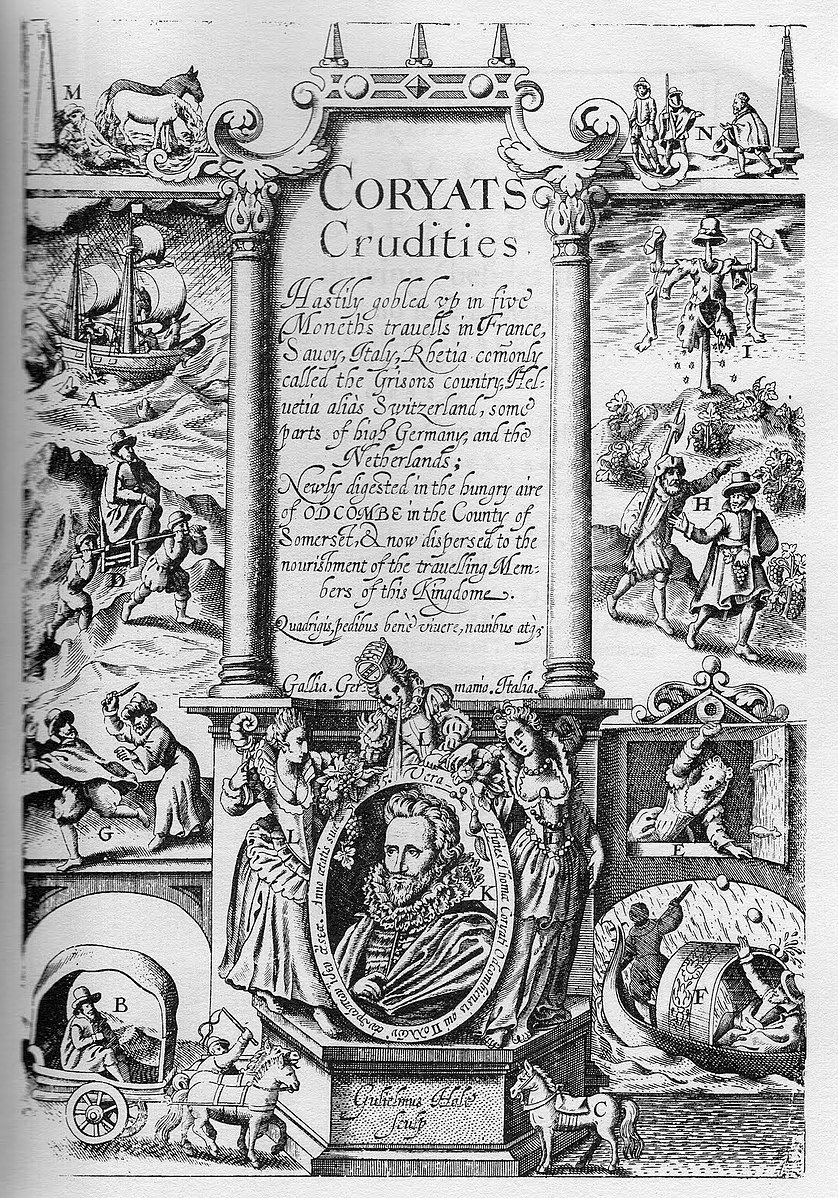 M
N
CORYATS
Crudities.
Hastily gobled vp in five
Moneths travells in France,
Sauoy, Italy, Rhetia com̄only
called the Grisons country, Hel=
uetia aliàs Switzerland, some
parts of high Germany, and the
Netherlands;
Newly digested in the hungry aire
of ODCOMBE in the County of
Somerset, & now dispersed to the
nourishment of the travelling Mem=
bers of this Kingdome.
Quadrigis, pedibus benè viuere, nauibus atqꝫ
A
I
D
H
Gallia. Ger= mania. Italia.
G
L
E
Vera effigies Thomæ Coryati
Anno ætatis suæ
K
B
F
Gulielmus Hole
sculp
C